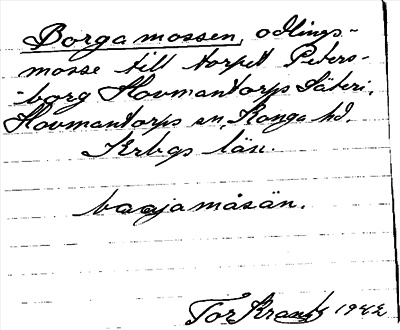 Borgamossen, odlings-
mosse till torpet Peters-
borg Hovmantorps Säteri,
Hovmantorps sn, Konga hd.
Krbgs län.
baajamåsän.
Tor 1942